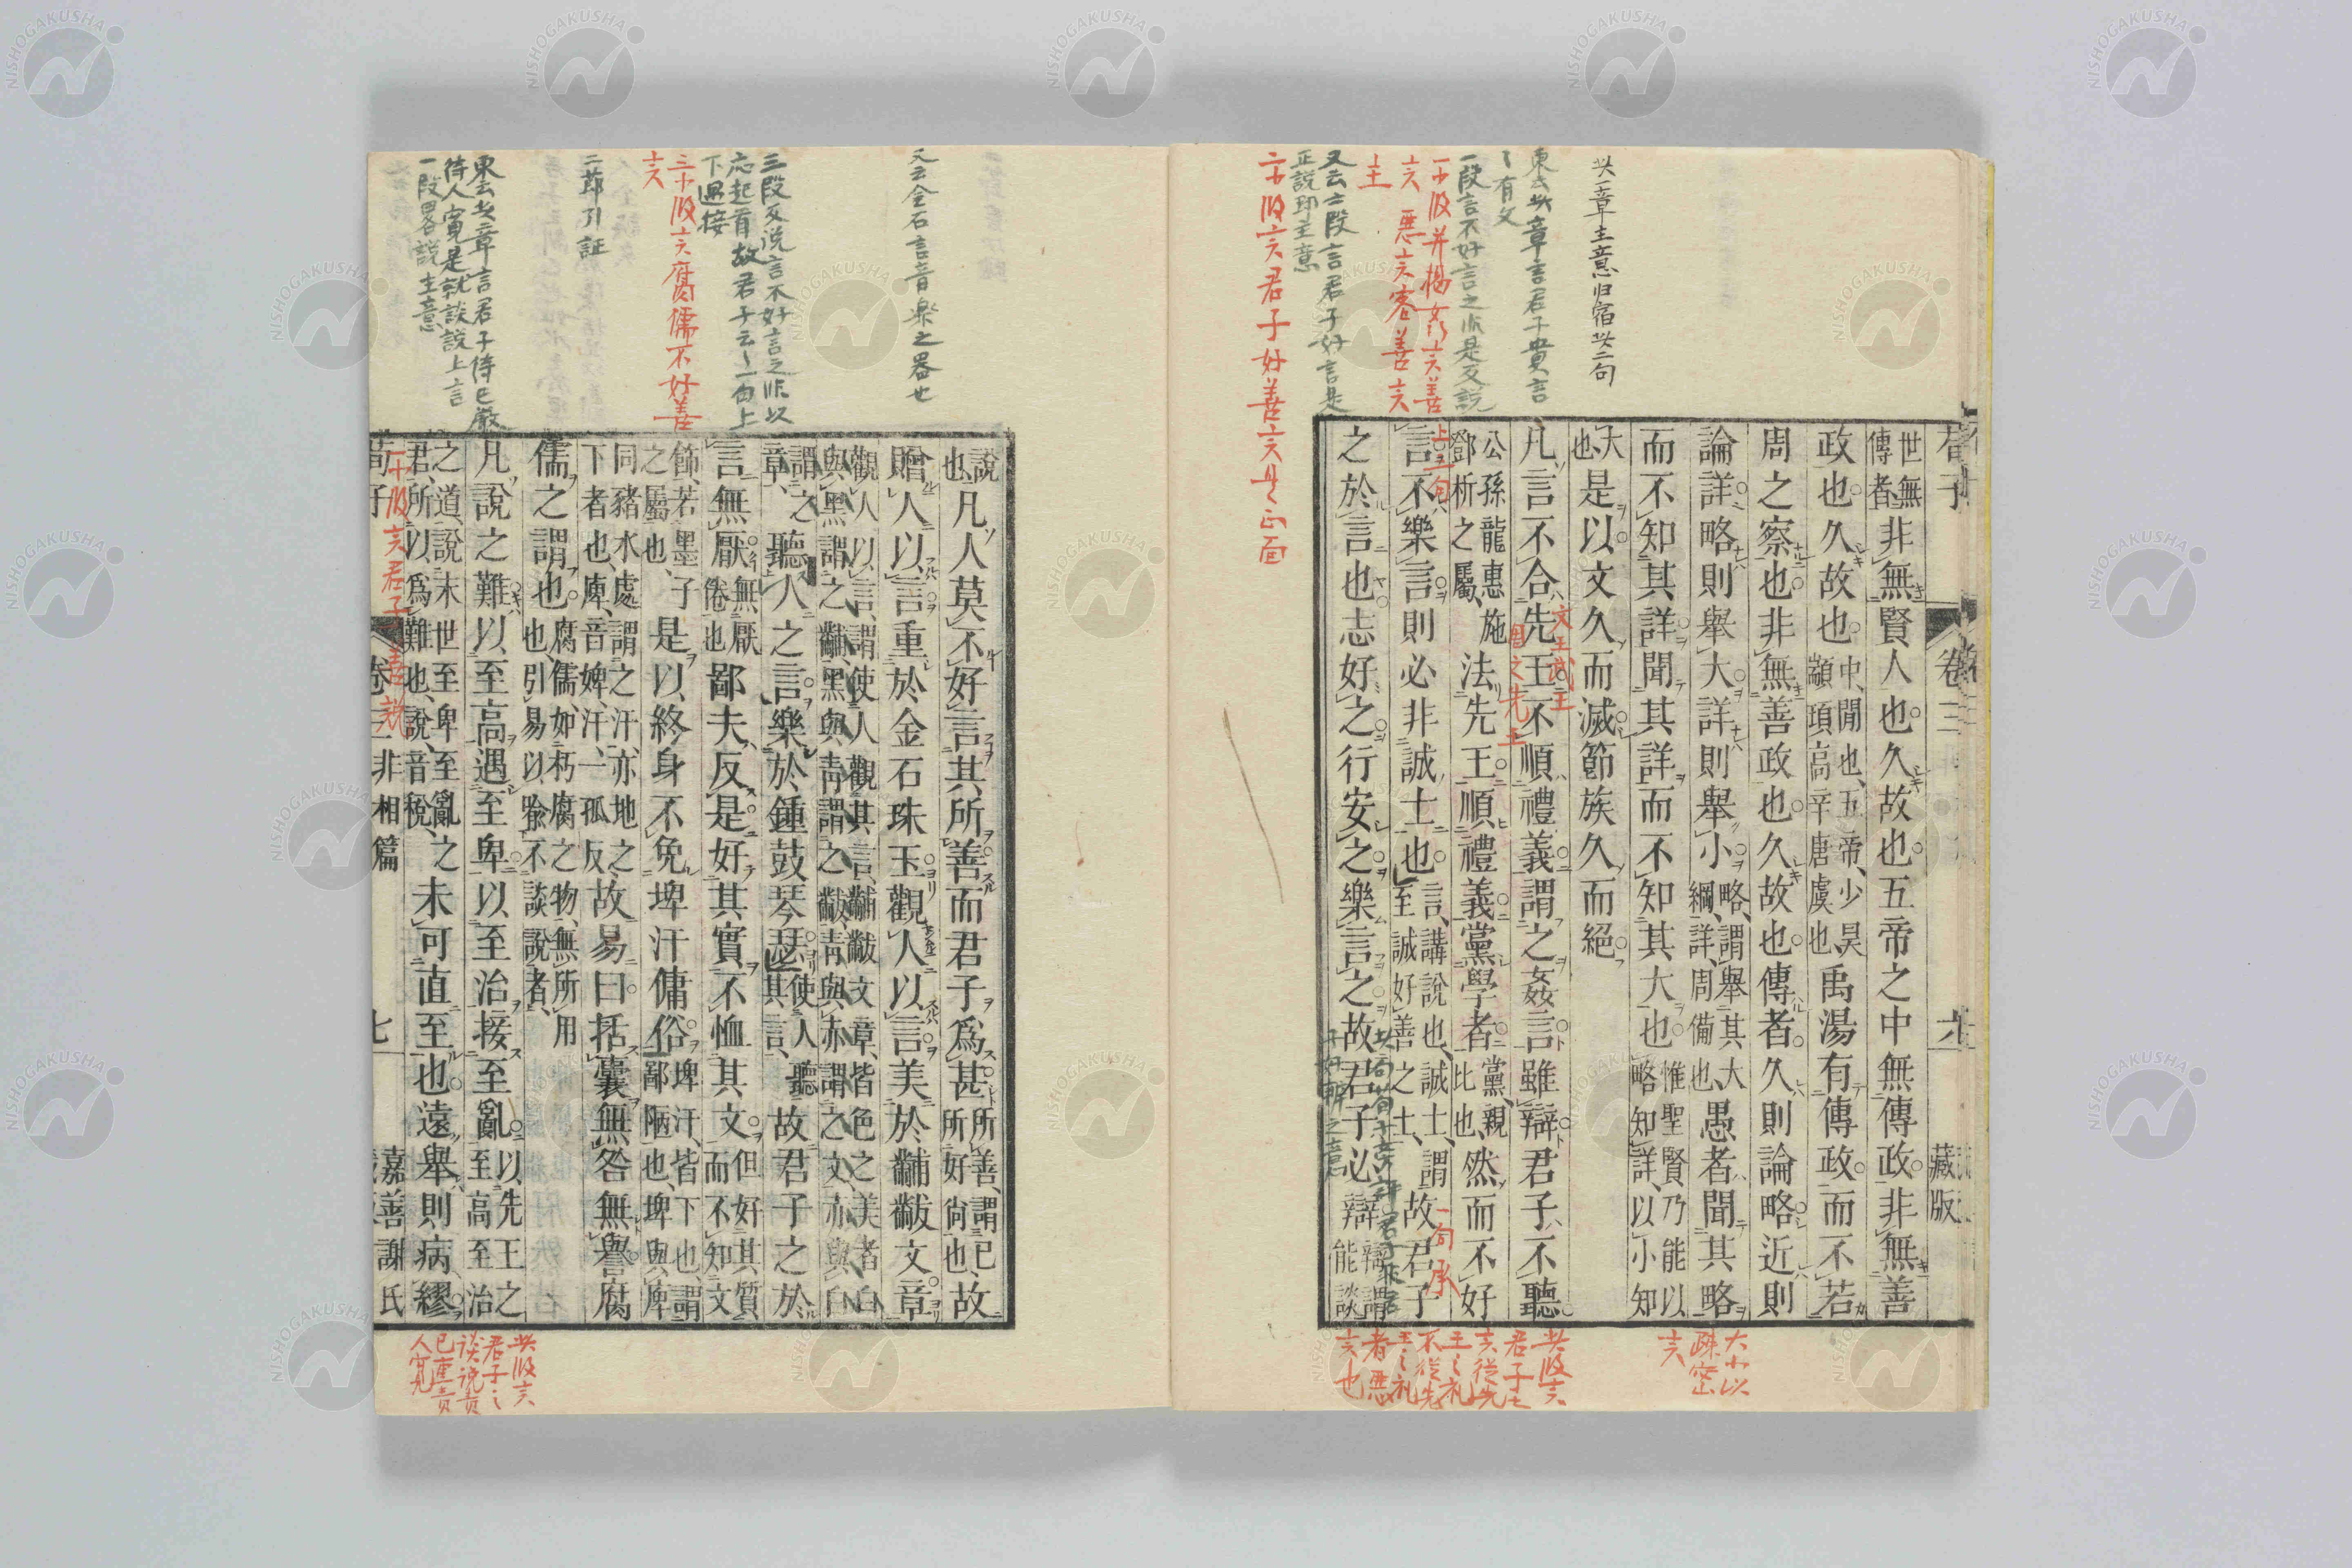 荀子
卷三
藏版
世無
傳者
非無賢人也久故也五帝之中無傳政非無善
政也久故也
中間也五帝少昊
顓頊高辛唐虞也
禹湯有傳政而不若
周之察也非無善政也久故也傳者久則論略近則
論詳略則舉大詳則舉小
略謂舉其大
綱詳周備也
愚者聞其略
而不知其詳聞其詳而不知其大也
惟聖賢乃能以
略知詳以小知
大
也
是以文久而滅節族久而絕
凡言不合先王不順禮義謂之姦言雖辯君子不聽
公孫龍惠施
鄧析之屬
法先王順禮義黨學者
黨親
比也
然而不好
言不樂言則必非誠士也
言講說也誠士謂
至誠好善之士
故君子
之於言也志好之行安之樂言之故君子必辯
辯謂
能談
說
也
凡人莫不好言其所善而君子為甚
所善謂己
所好尚也
故
贈人以言重於金石珠玉觀人以言美於黼黻文章
觀人以言謂使人觀其言黼黻文章皆色之美者白
與黑謂之黼黑與靑謂之黻靑與赤謂之文赤與白
謂之
章
聽人之言樂於鍾鼓琴瑟
使人聽
其言
故君子之於
言無厭
無厭
倦也
鄙夫反是好其實不恤其文
但好其質
而不知文
飾若墨子
之屬也
是以終身不免埤汙傭俗
埤汙皆下也謂
鄙陋也埤與庳
同豬水處謂之汙亦地之
下者也庳音婢汙一孤反
故易曰括囊無咎無譽腐
儒之謂也
腐儒如朽腐之物無所用
也引易以喻不談說者
凡說之難以至高遇至卑以至治接至亂
以先王之
至高至治
之道說末世至卑至亂之
君所以為難也說音稅
未可直至也遠舉則病繆
荀子
非相篇
七
嘉善謝氏
此一章主意归宿此二句
東云此章言君子貴言
一段言不好言之非是反說
又云二段言君子好言是
正說即主意
二小段言君子好善言是正面
文王武王
周之先王
又云金石言音楽之器也
三段反说言不好言之非以
応起首故君子云々一句上
下過接
三小段言腐儒不好善
言
二節引証
東云此章言君子待己厳
待人寛是就談說上言
一段畧說主意
大小以
疎密
言
此段言
君子之
談説責
己重責
人寛